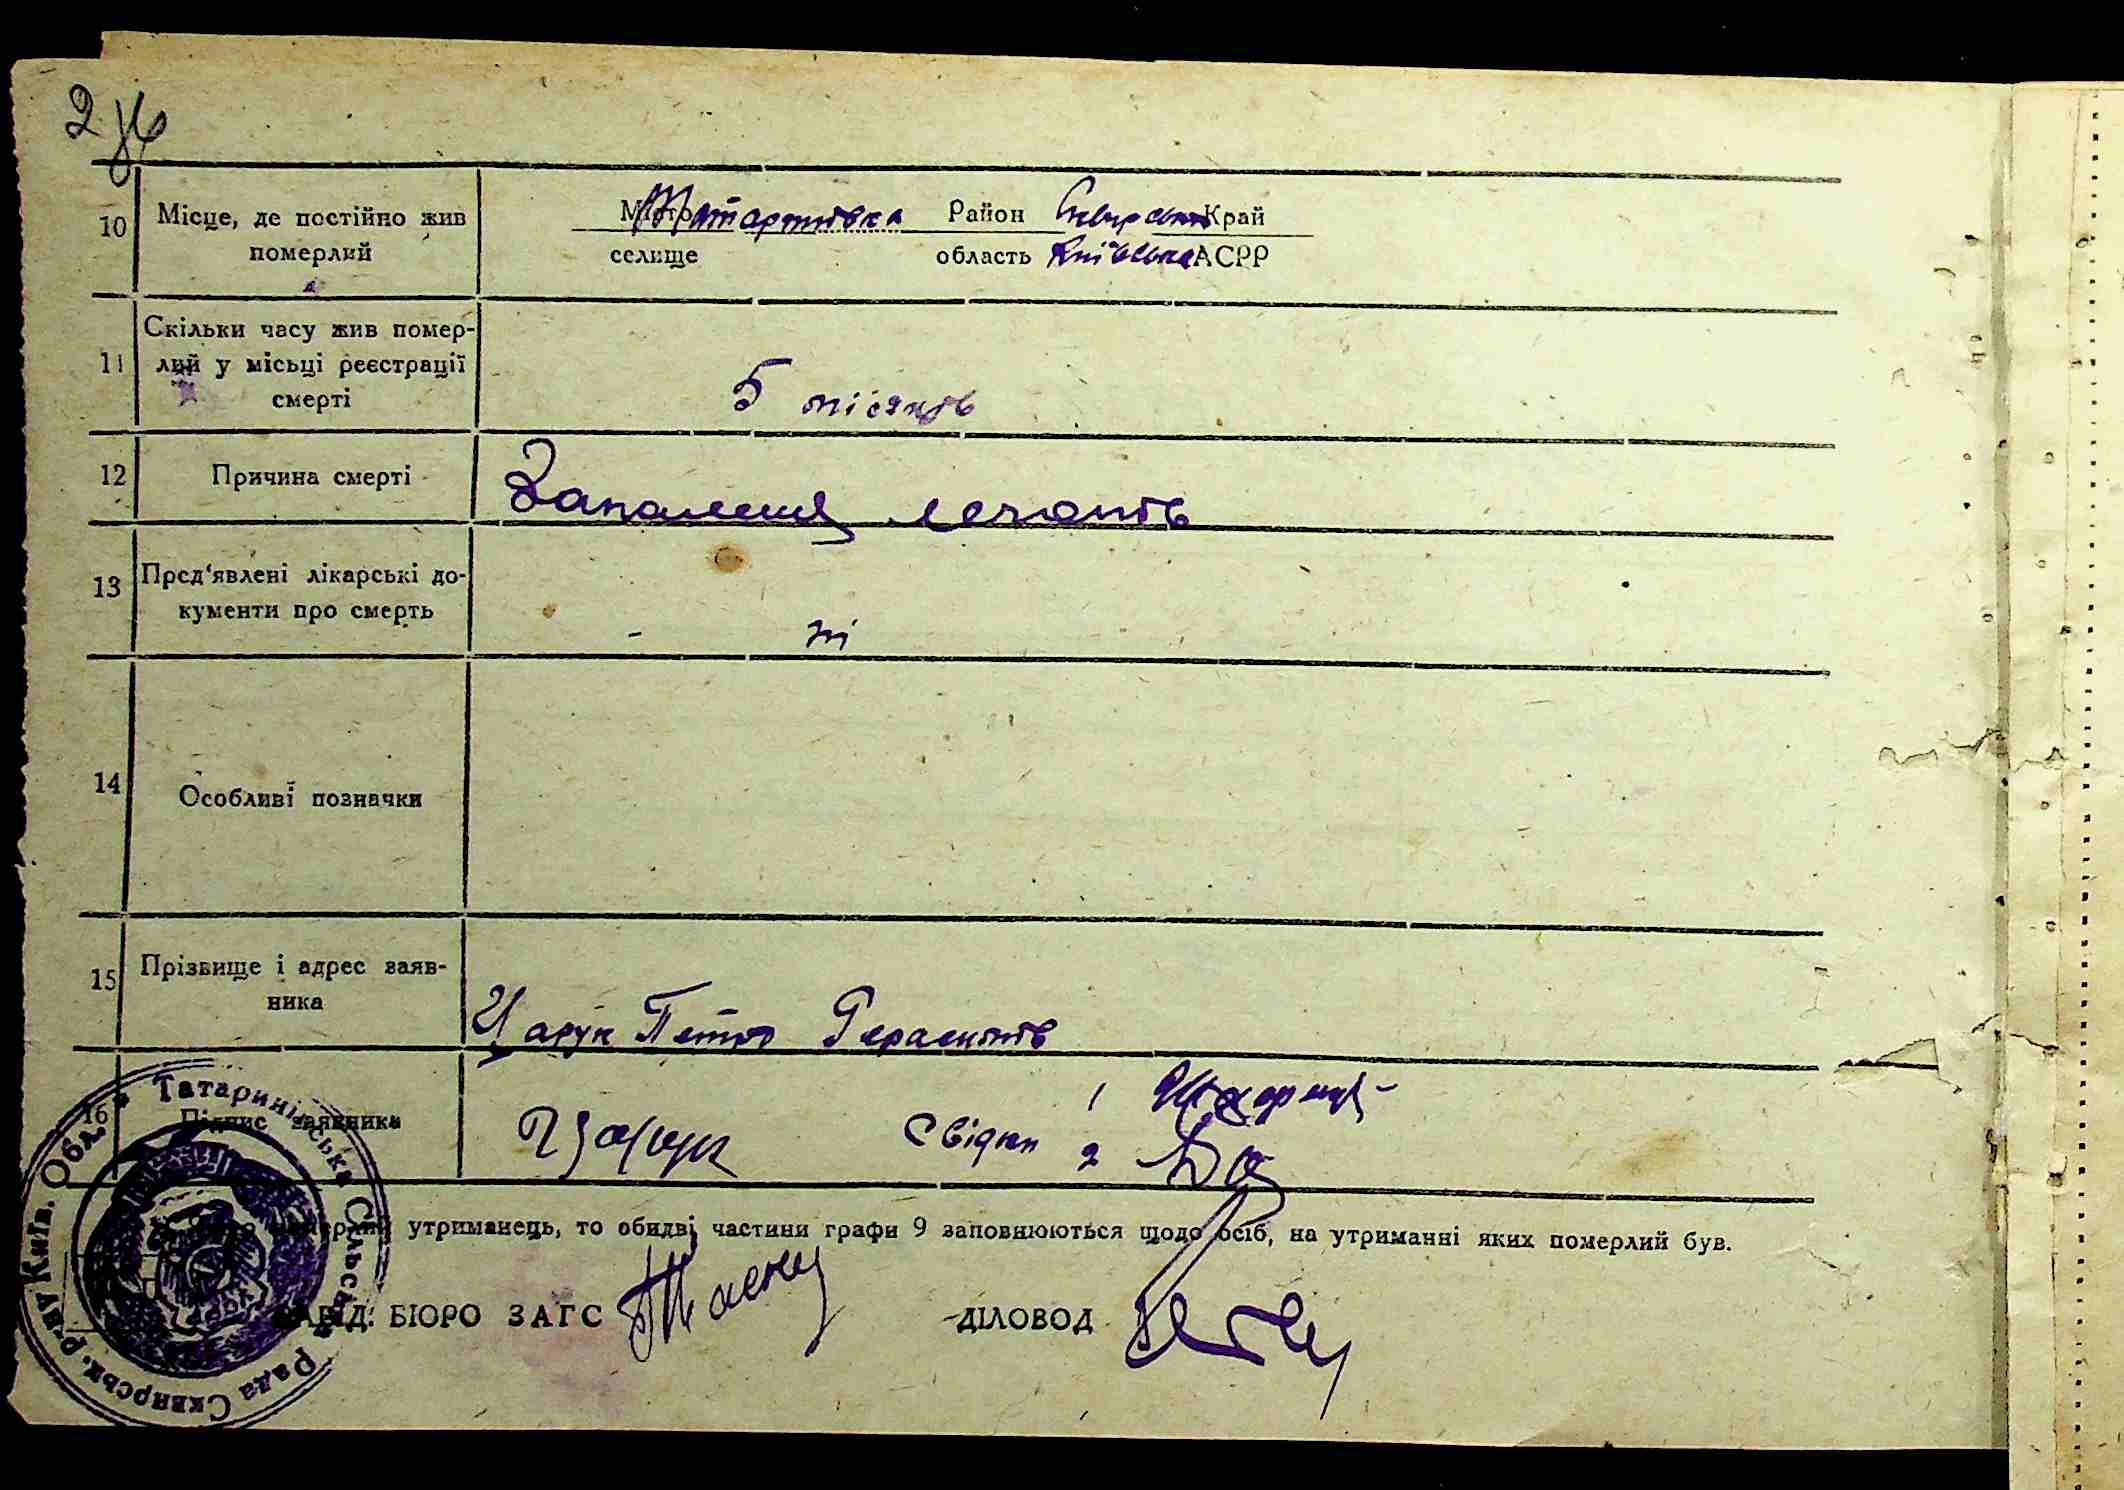 2
10 Місце, де постійно жив Місто Татаринівка Район Сквирський Край
померлий селище область Київська АСРР
Скільки часу жив помер-
11 лий у місьці реєстрації
смерті 5 місяців
12 Причина смерті Запалення легенів
13 Пред'явлені лікарські до-
кументи про смерть - ні
14 Особливі позначки
15 Прізвище і адрес заяв-
ника Царук Петро Герасимів
16 Підпис заявника Царук Свідки 1
2
померлий утриманець, то обидві частини графи 9 заповнюються щодо осіб, на утриманні яких померлий був.
ЗАВІД. БЮРО ЗАГС ДІЛОВОД
Татаринівська Сільська Рада Сквирськ. р-ну Київ. Обл.